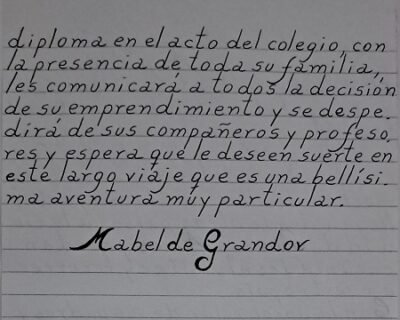 diploma en el acto del colegio, con
la presencia de toda su familia,
les comunicará a todos la decisión
de su emprendimiento y se despe.
dirá de sus compañeros y profeso.
res y espera que le deseen suerte en
este largo viáje que es una bellísi.
ma aventura múy particular.
Mabel de Grandov